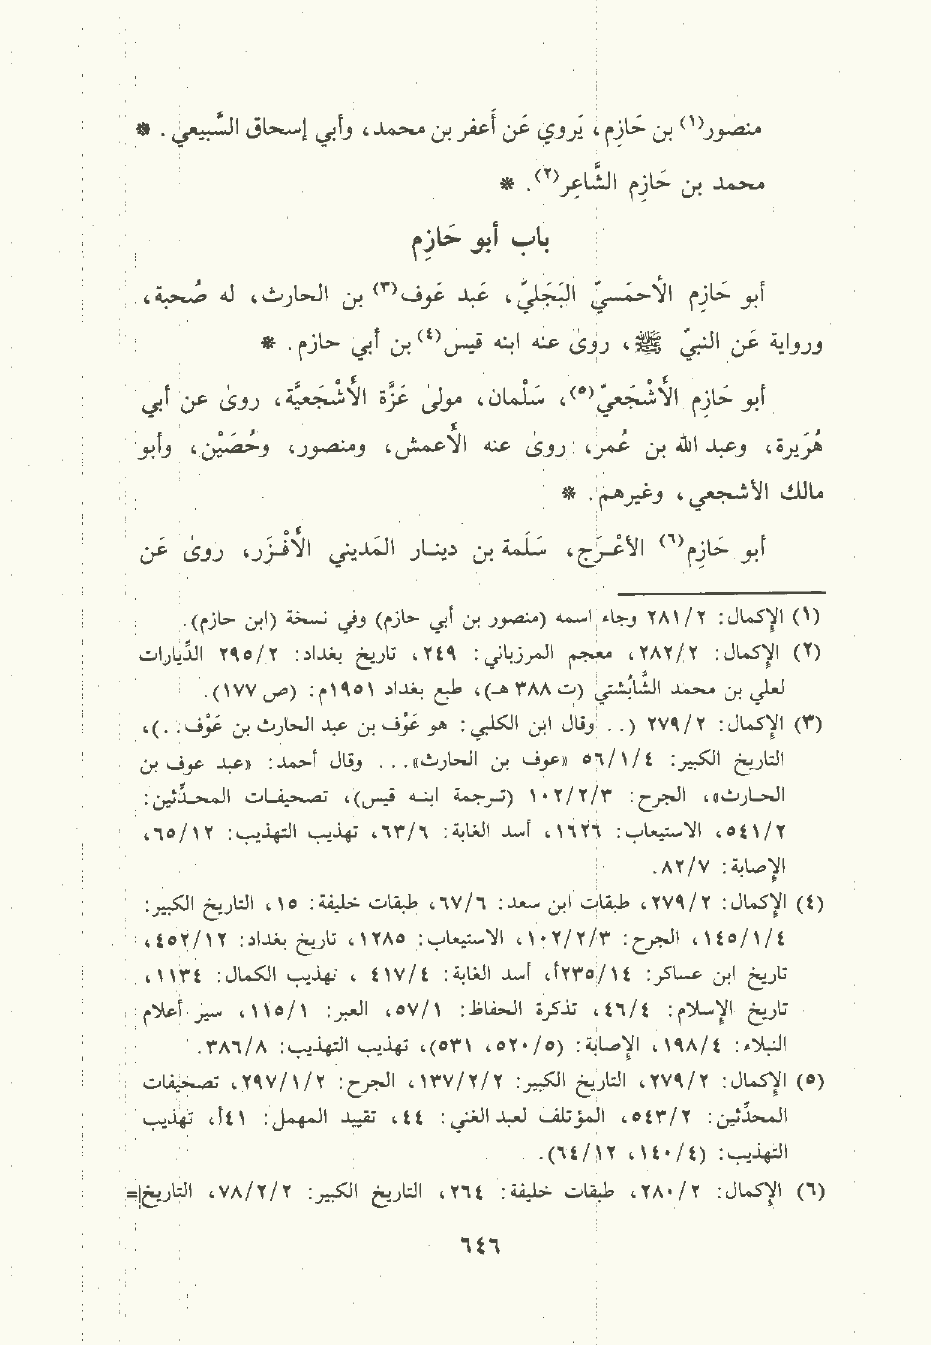 منصور(١) بن حَازِم، يَروي عَن أَعفر بن محمد، وأبي إسحاق السَّبيعي . *
محمد بن حَازِم الشَّاعِر(٢) . *
باب أبو حَازِم
أبو حَازِم الأحمَسيّ البَجَليّ، عَبد عَوف(٣) بن الحارث، له صُحبة،
ورواية عَن النبيّ ﷺ، روىٰ عنه ابنه قيس(٤) بن أبي حازم. *
أبو حَازِم الأَشْجَعيّ(٥)، سَلْمان، مولىٰ عَزَّة الأَشْجَعيَّة، روىٰ عن أبي
هُرَيرة، وعبد الله بن عُمر، روىٰ عنه الأَعمش، ومنصور، وحُصَيْن، وأبو
مالك الأشجعي، وغيرهم. *
أبو حَازِم(٦) الأعْـرَج، سَـلَمة بن دينـار المَديني الأَفْـزَر، روىٰ عَن
(١) الإكمال: ٢٨١/٢ وجاء اسمه (منصور بن أبي حازم) وفي نسخة (ابن حازم).
(٢) الإكمال: ٢٨٢/٢، معجم المرزباني: ٢٤٩، تاريخ بغداد: ٢٩٥/٢ الدِّيارات
لعلي بن محمد الشَّابُشتي (ت ٣٨٨ هـ)، طبع بغداد ١٩٥١م: (ص ١٧٧).
(٣) الإكمال: ٢٧٩/٢ (.. وقال ابن الكلبي: هو عَوْف بن عبد الحارث بن عَوْف..)،
التاريخ الكبير: ٥٦/١/٤ «عوف بن الحارث»... وقال أحمد: «عبد عوف بن
الحـارث»، الجرح: ١٠٢/٢/٣ (تـرجمة ابنـه قيس)، تصحيفـات المحـدِّثين:
٥٤١/٢، الاستيعاب: ١٦٢٦، أسد الغابة: ٦٣/٦، تهذيب التهذيب: ٦٥/١٢،
الإصابة: ٨٢/٧.
(٤) الإكمال: ٢٧٩/٢، طبقات ابن سعد: ٦٧/٦، طبقات خليفة: ١٥، التاريخ الكبير:
١٤٥/١/٤، الجرح: ١٠٢/٢/٣، الاستيعاب: ١٢٨٥، تاريخ بغداد: ٤٥٢/١٢،
تاريخ ابن عساكر: ٢٣٥/١٤أ، أسد الغابة: ٤١٧/٤ ، تهذيب الكمال: ١١٣٤،
تاريخ الإسلام: ٤٦/٤، تذكرة الحفاظ: ٥٧/١، العبر: ١١٥/١، سير أعلام
النبلاء: ١٩٨/٤، الإصابة: (٥٢٠/٥، ٥٣١)، تهذيب التهذيب: ٣٨٦/٨.
(٥) الإكمال: ٢٧٩/٢، التاريخ الكبير: ١٣٧/٢/٢، الجرح: ٢٩٧/١/٢، تصحيفات
المحدِّثين: ٥٤٣/٢، المؤتلف لعبد الغني: ٤٤، تقييد المهمل: ٤١أ، تهذيب
التهذيب: (١٤٠/٤، ٦٤/١٢).
(٦) الإكمال: ٢٨٠/٢، طبقات خليفة: ٢٦٤، التاريخ الكبير: ٧٨/٢/٢، التاريخ=
٦٤٦